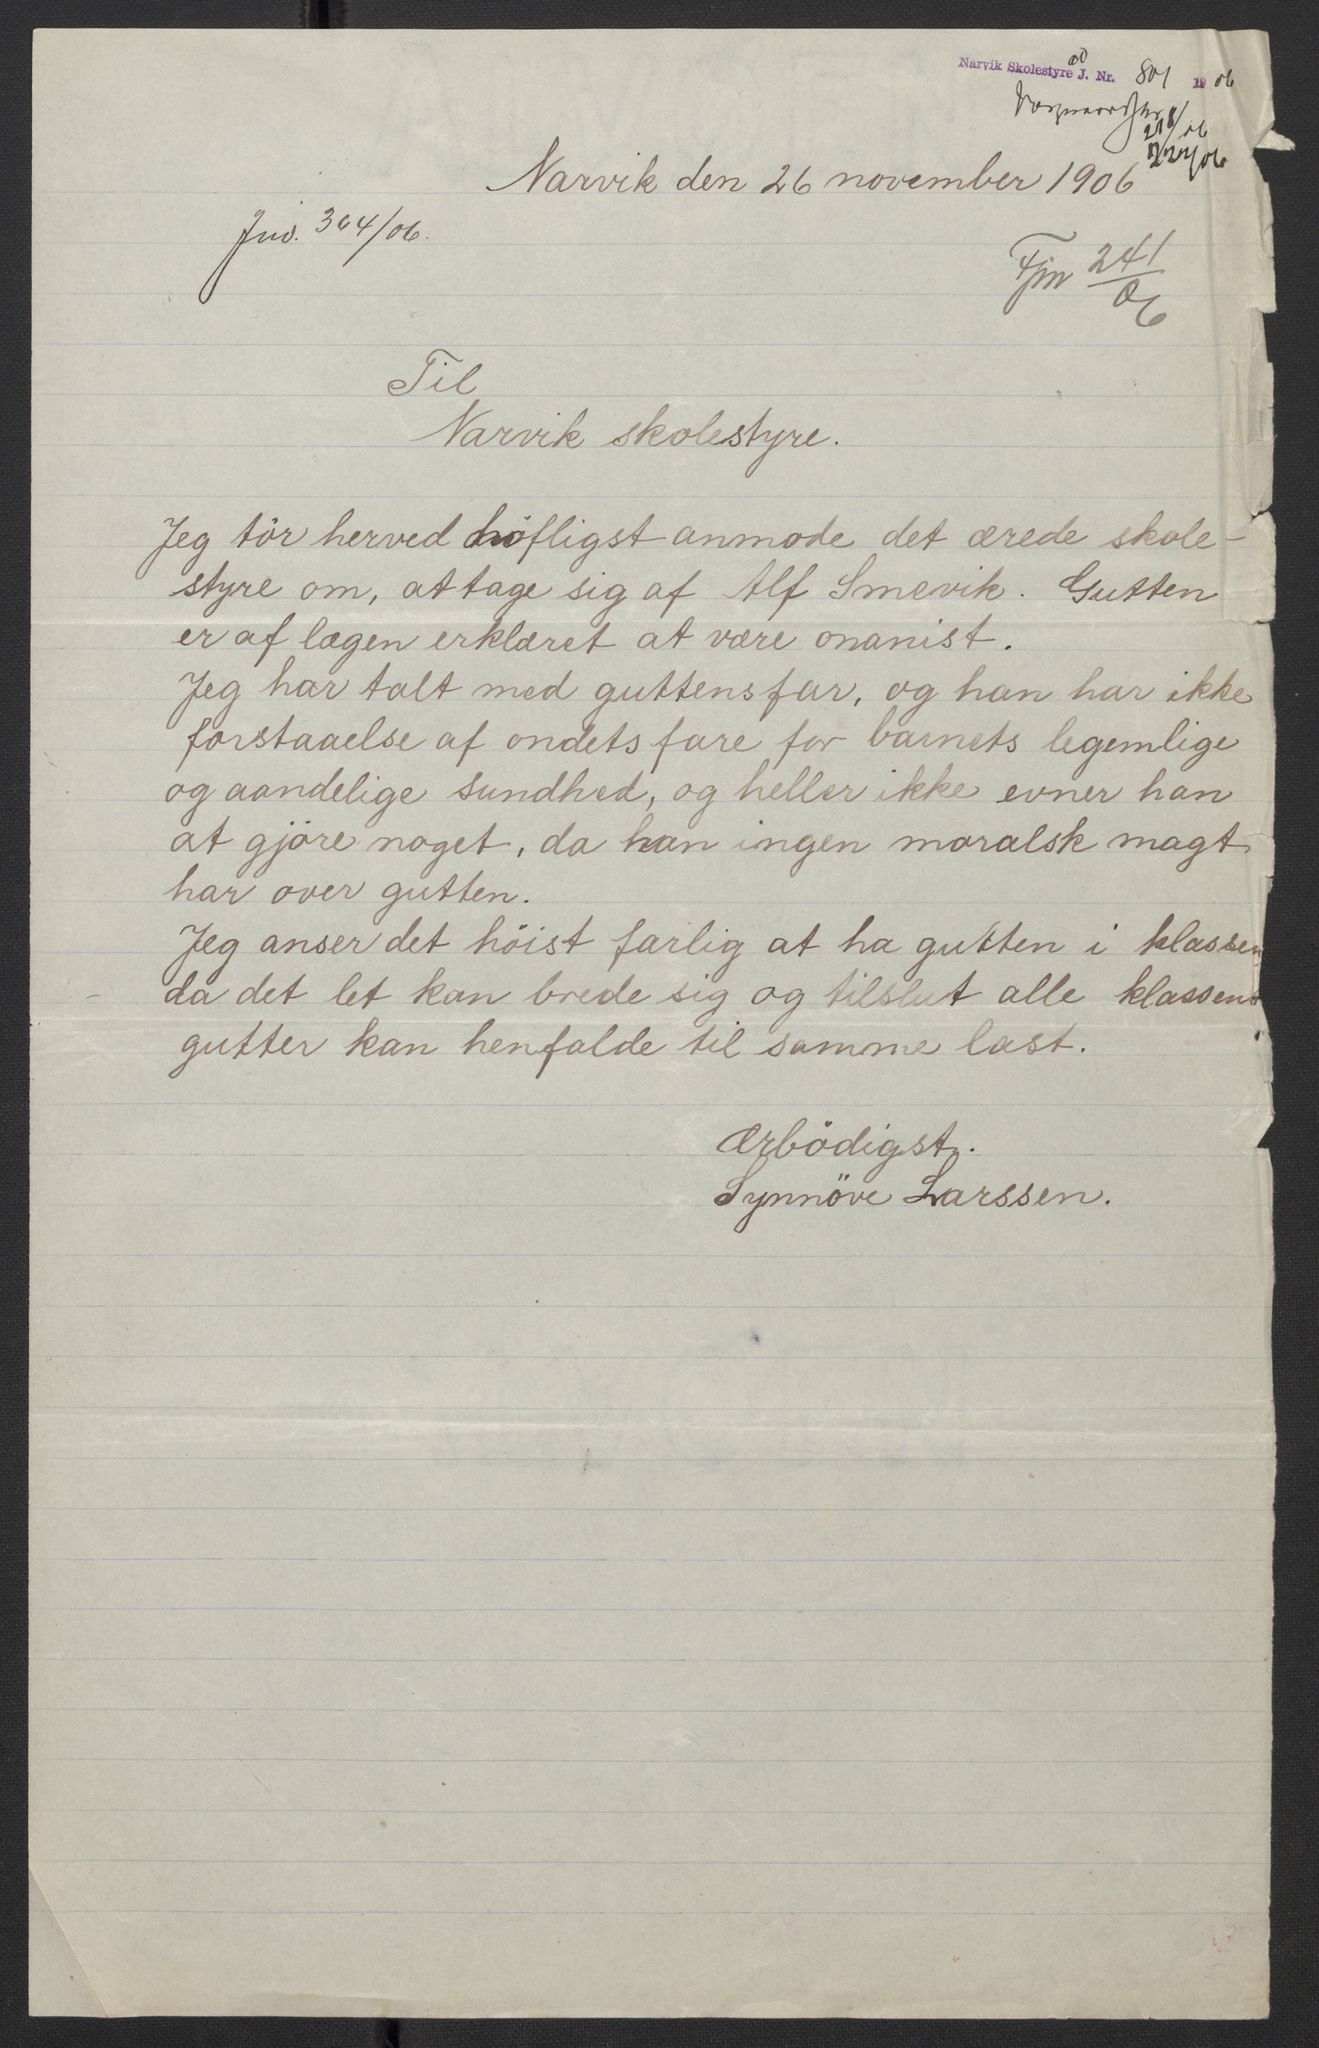 Narvik Skolestyre J. Nr. 801 1906
218/06
227/06
Narvik den 26 november 1906
Jnö. 364/06.
Fjm 241/06
Til
Narvik skolestyre.
Jeg tör herved höfligst anmode det ærede skole-
styre om, at tage sig af Alf Smevik. Gutten
er af lægen erklæret at være onanist.
Jeg har talt med guttens far, og han har ikke
forstaaelse af ondets fare for barnets legemlige
og aandelige sundhed, og heller ikke evner han
at gjöre noget, da han ingen moralsk magt
har over gutten.
Jeg anser det höist farlig at ha gutten i klassen
da det let kan brede sig og tilslut alle klassens
gutter kan henfalde til samme last.
Ærbödigst.
Synnöve Larssen.